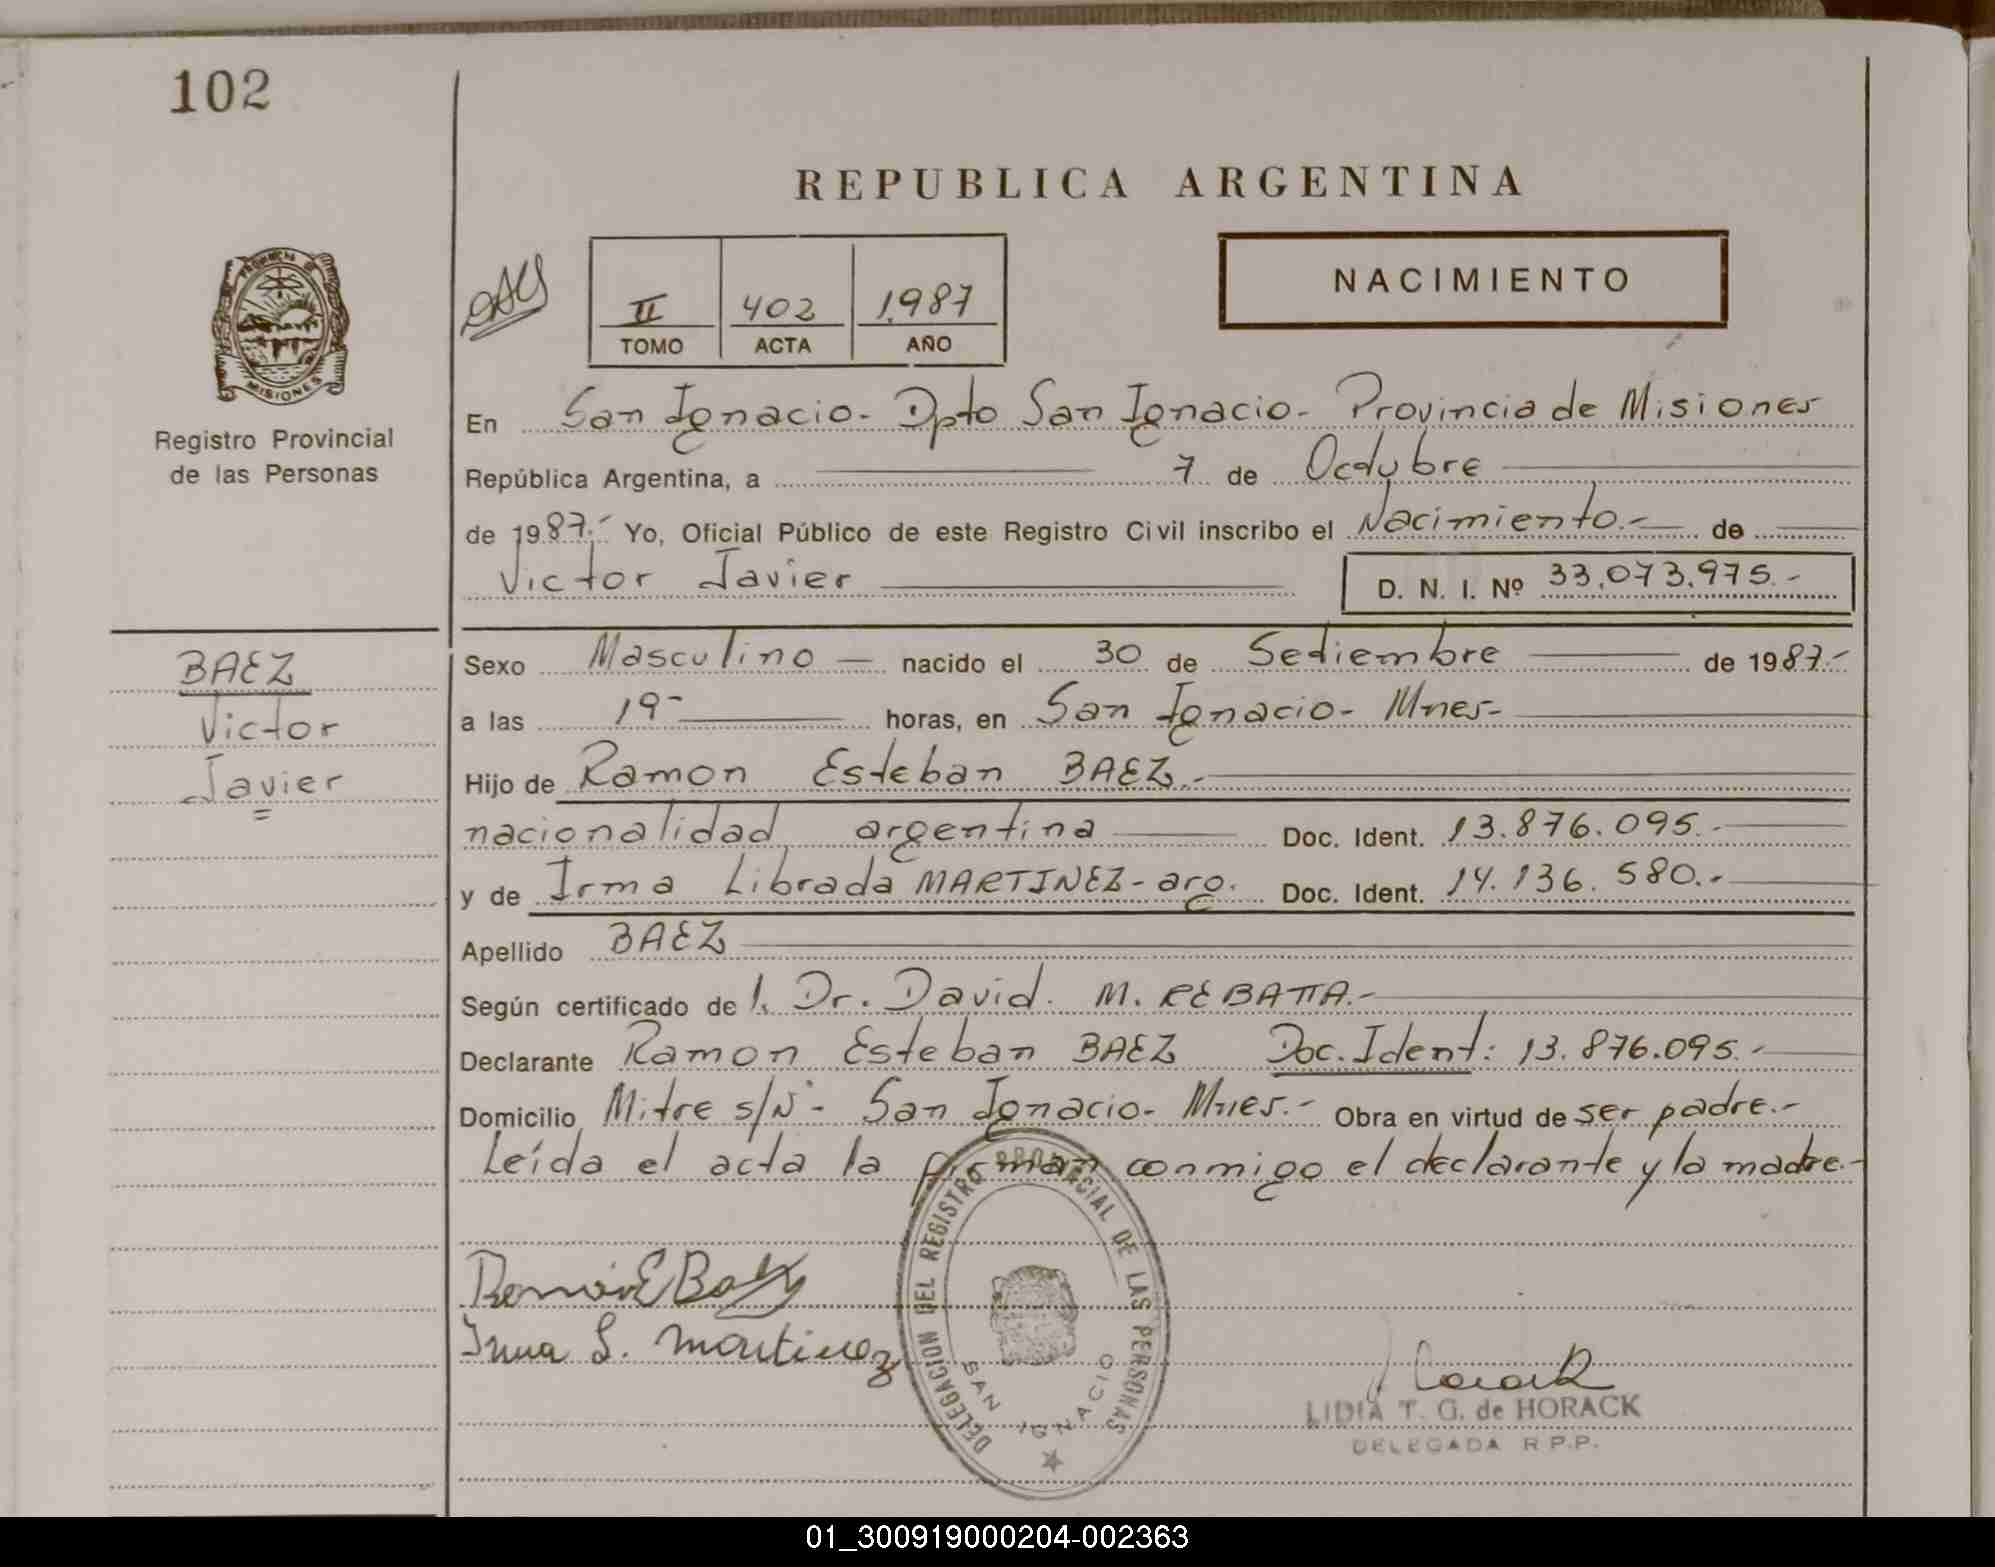 102
REPUBLICA ARGENTINA
PROVINCIA DE
MISIONES
Registro Provincial
de las Personas
II 402 1.987
TOMO ACTA AÑO
NACIMIENTO
En San Ignacio- Dpto San Ignacio- Provincia de Misiones
República Argentina, a 7 de Octubre
de 1987.- Yo, Oficial Público de este Registro Civil inscribo el Nacimiento.- de
Victor Javier D. N. I. Nº 33.073.975.-
BAEZ
Victor
Javier
Sexo Masculino nacido el 30 de Setiembre de 1987.-
a las 19- horas, en San Ignacio- Mnes-
Hijo de Ramon Esteban BAEZ.-
nacionalidad argentina Doc. Ident. 13.876.095.-
y de Irma Librada MARTINEZ- arg. Doc. Ident. 14.136.580.-
Apellido BAEZ
Según certificado de l. Dr. David. M. REBATTA.-
Declarante Ramon Esteban BAEZ Doc. Ident: 13.876.095.-
Domicilio Mitre s/Nº- San Ignacio- Mnes.- Obra en virtud de ser padre.-
Leída el acta la firman conmigo el declarante y la madre.-
Ramón E Baez
Irma L. Martinez
DELEGACION DEL REGISTRO PROVINCIAL DE LAS PERSONAS
SAN IGNACIO
LIDIA T. G. de HORACK
DELEGADA R.P.P.
01_300919000204-002363